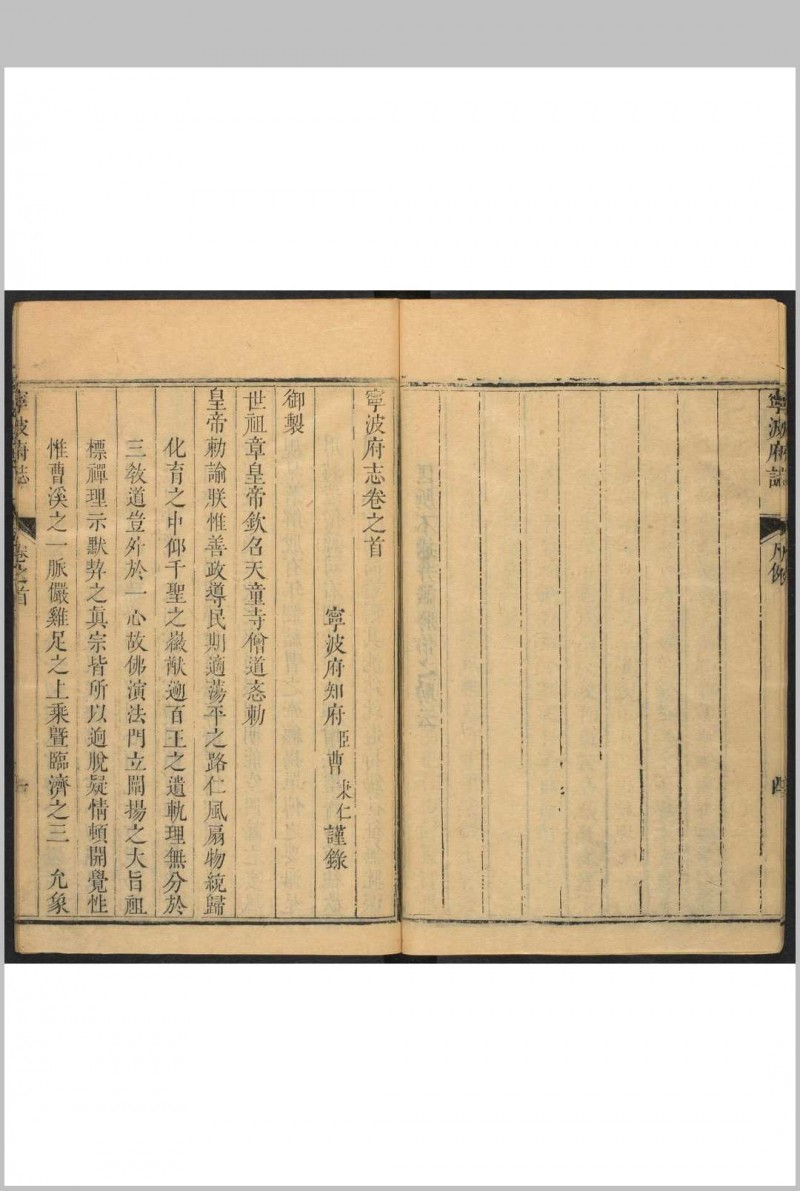 寧波府志 凡例 四
寧波府志卷之首
寧波府知府臣曹秉仁謹錄
御製
世祖章皇帝欽召天童寺僧道忞勅
皇帝勅諭朕惟善政導民期適蕩平之路仁風扇物統歸
化育之中仰千聖之徽猷逈百王之遺軌理無分於
三敎道豈外於一心故佛演法門立闡揚之大旨祖
標禪理示默契之眞宗皆所以逈脫疑情頓開覺性
惟曹溪之一脈儼雞足之上乘暨臨濟之三 允象
寧波府志 卷之首 一